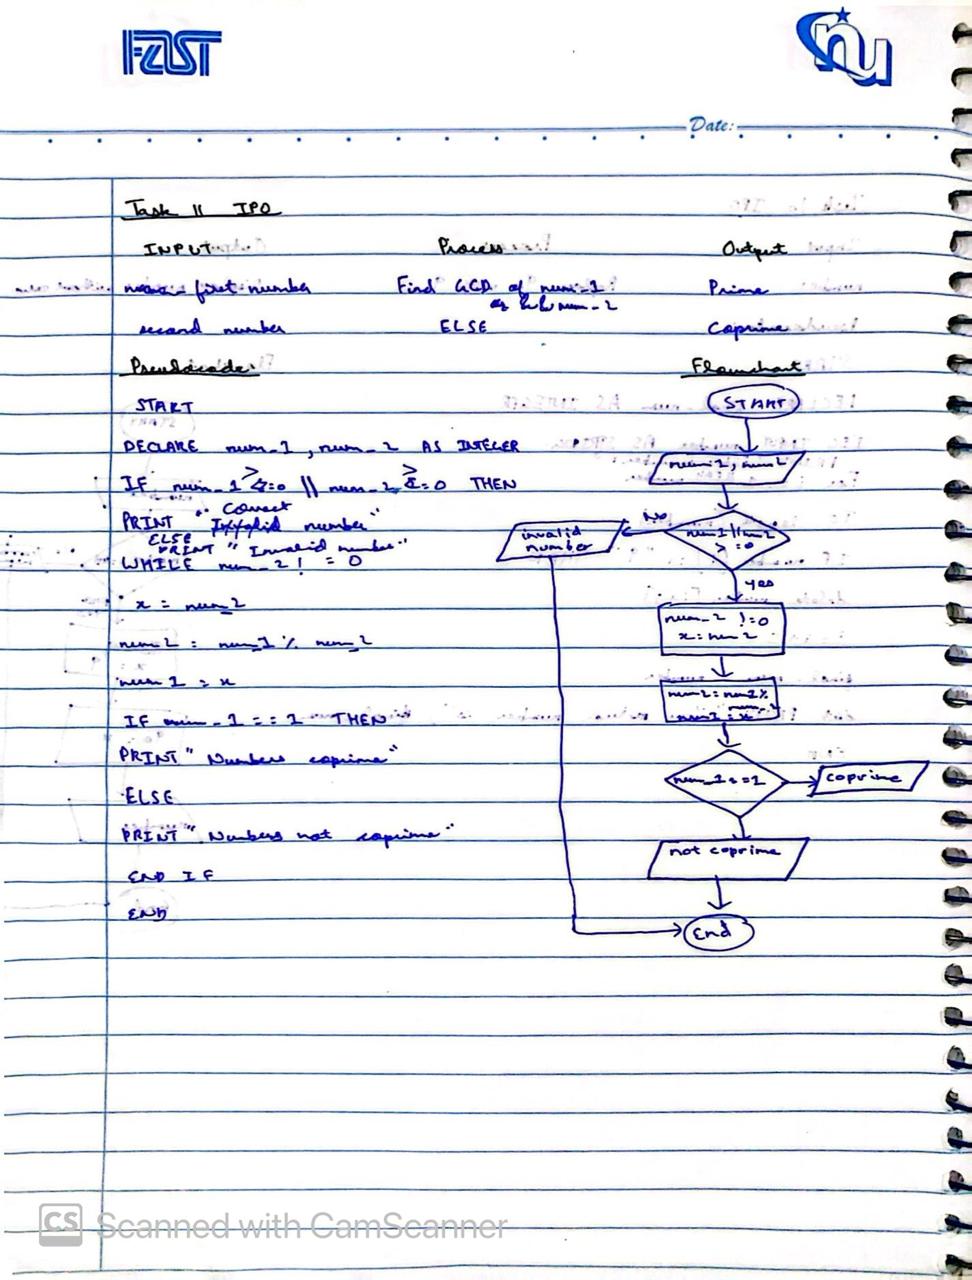 FAST
nu
Date:
Task 11 IPO
INPUT Process Output
first number Find GCD of num_1 Prime
num_2
second number ELSE Coprime
Pseudocode Flowchart
START
DECLARE num_1, num_2 AS INTEGER
IF num_1 >=0 || num_2 >=0 THEN
PRINT " Correct number"
ELSE
PRINT "Invalid number"
WHILE num_2 != 0
x = num_2
num2 = num_1 % num_2
num1 = x
IF num_1 == 1 THEN
PRINT " Numbers coprime"
ELSE
PRINT " Numbers not coprime"
END IF
END
START
num1, num2
num1||num2
> =0
No
invalid
number
yes
num_2 !=0
x=num2
num2=num1%
num_2
num1=x
num_1==1
coprime
not coprime
End
CS Scanned with CamScanner